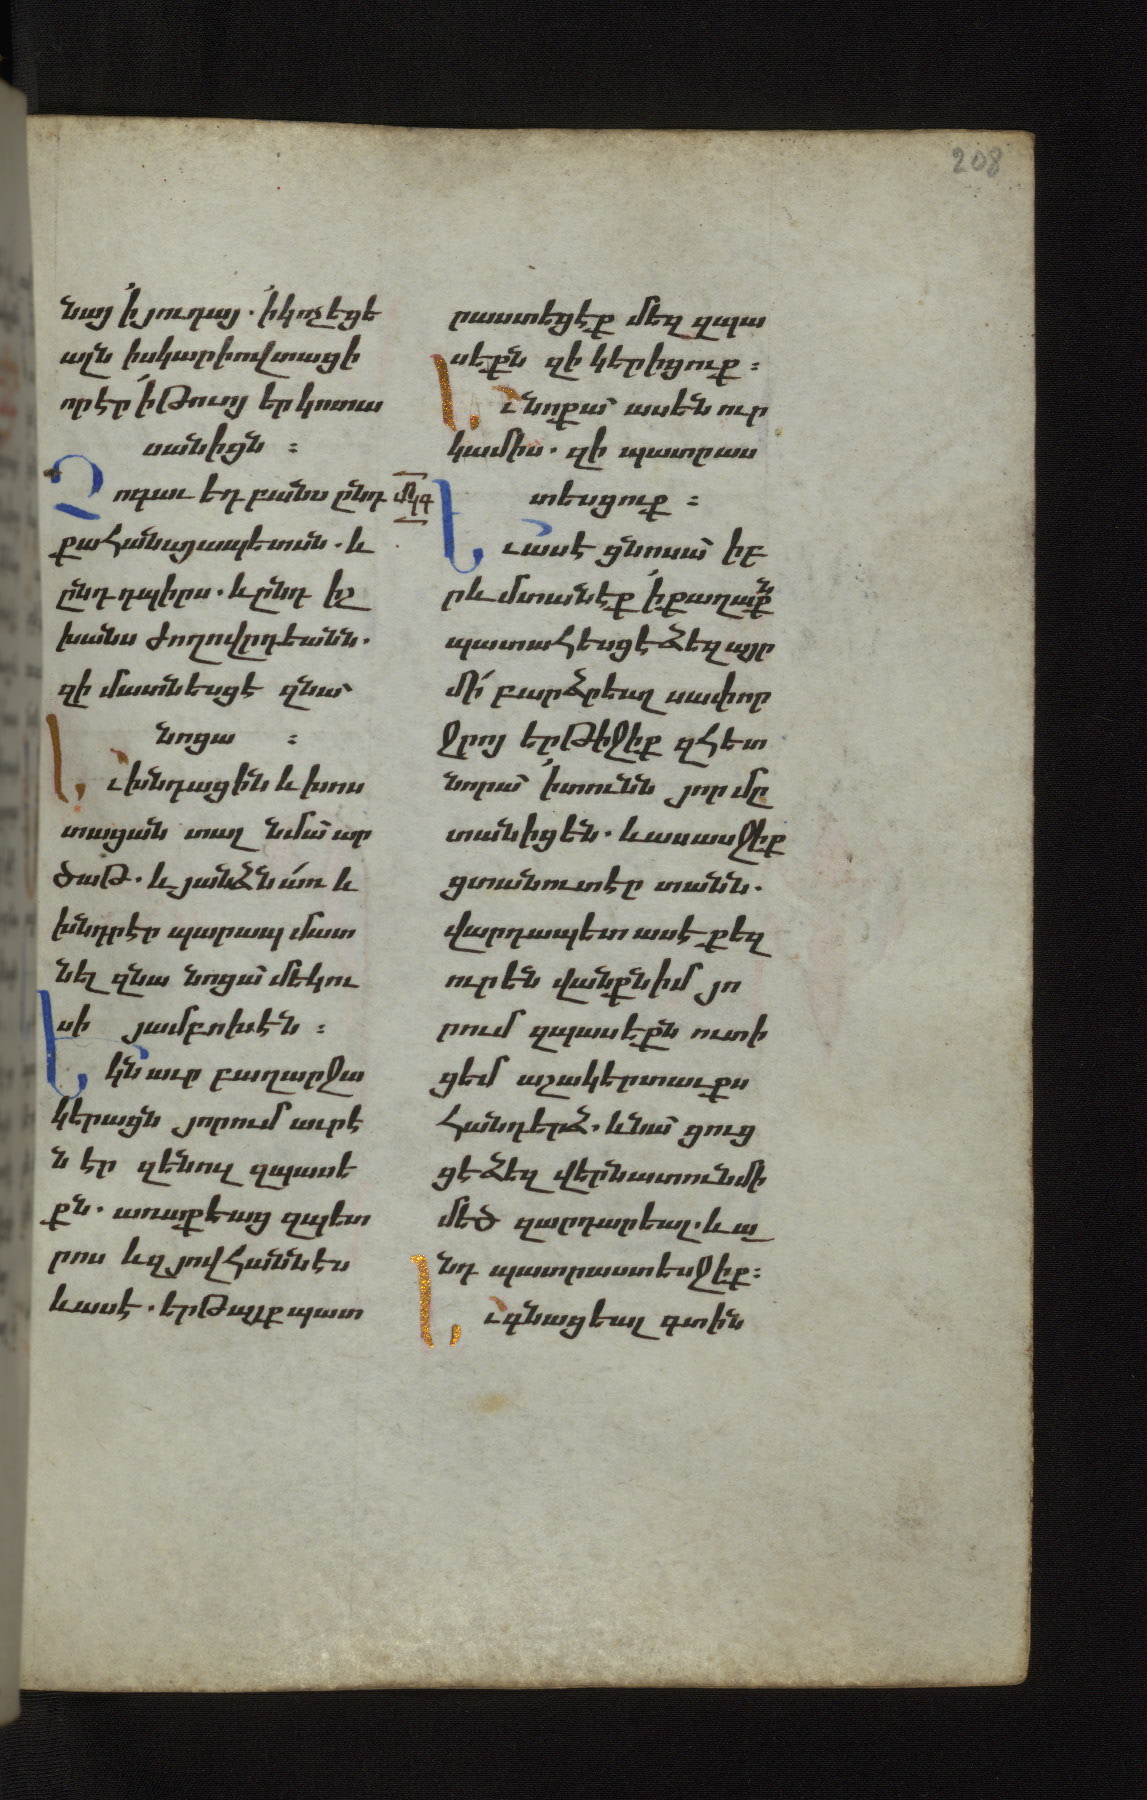 208
նայ ի յուդայ. ի կոչեցե
ալն իսկարիովտացի
որ էր ի թուոյ երկոտա
սանիցն :
Չոգաւ եդ բանս ընդ մկգ
քահանայապետսն. և
ընդ դպիրս. և ընդ իշ
խանս ժողովրդեանն.
զի մատնեսցէ զնա՝
նոցա :
Եւ խնդացին և խոս
տացան տալ նմա՝ ար
ծաթ. և յանձն առ և
խնդրէր պարապ մատ
նել զնա նոցա՝ մեկու
սի յամբոխէն :
Եկն աւր բաղարջա
կերացն յորում աւրէ
ն էր զենուլ զպասե
քն. առաքեաց զպետ
րոս և զյովհաննէս
և ասէ. երթայք պատ
րաստեցէք մեզ զպա
սեքն զի կերիցուք :
Եւ նոքա՝ ասեն ուր
կամիս. զի պատրաս
տեսցուք :
Եւ ասէ ցնոսա՝ իբ
րև մտանէք ի քաղաքն
պատահեսցէ ձեզ այր
մի բարձրեալ սափոր
ջրոյ երթիջիք զհետ
նորա՝ ի տունն յոր մը
տանիցէն. և ասասջիք
ցտանուտէր տանն.
վարդապետ ասէ քեզ
ուր են վանքն իմ յո
րում զպասեքն ուտի
ցեմ աշակերտաւքս
հանդերձ. և նա՝ ցուց
ցէ ձեզ վերնատուն մի
մեծ զարդարեալ. և ա
նդ պատրաստեսջիք :
Եւ գնացեալ գտին